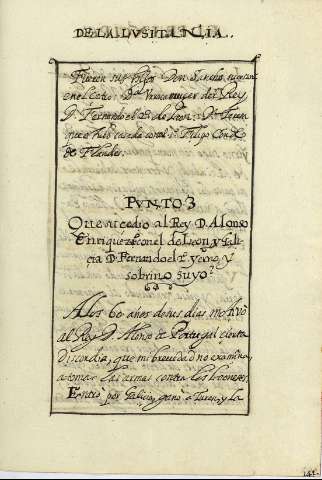 DE LA LVSITANIA.
Fueron sus hijos Don Sancho, sucesor
en el Cetro: Dª Vrraca muger del Rey
D. Fernando el 2. de Leon: Dª Teresa
que casada con Filipo Conde
de Flandes.
PVNTO 3
Que sucedio al Rey D. Alonso
Enriquez con el de Leon, y Gali
cia D. Fernando el 2º yerno, y
sobrino suyo?
A los 60 años de sus dias motivò
al Rey D. Alonso de Portugal cierta
discordia, que mi brevedad no examina,
a tomar las armas contra los Leoneses.
Entrò por Galicia, ganò a Tuy, y la
141.